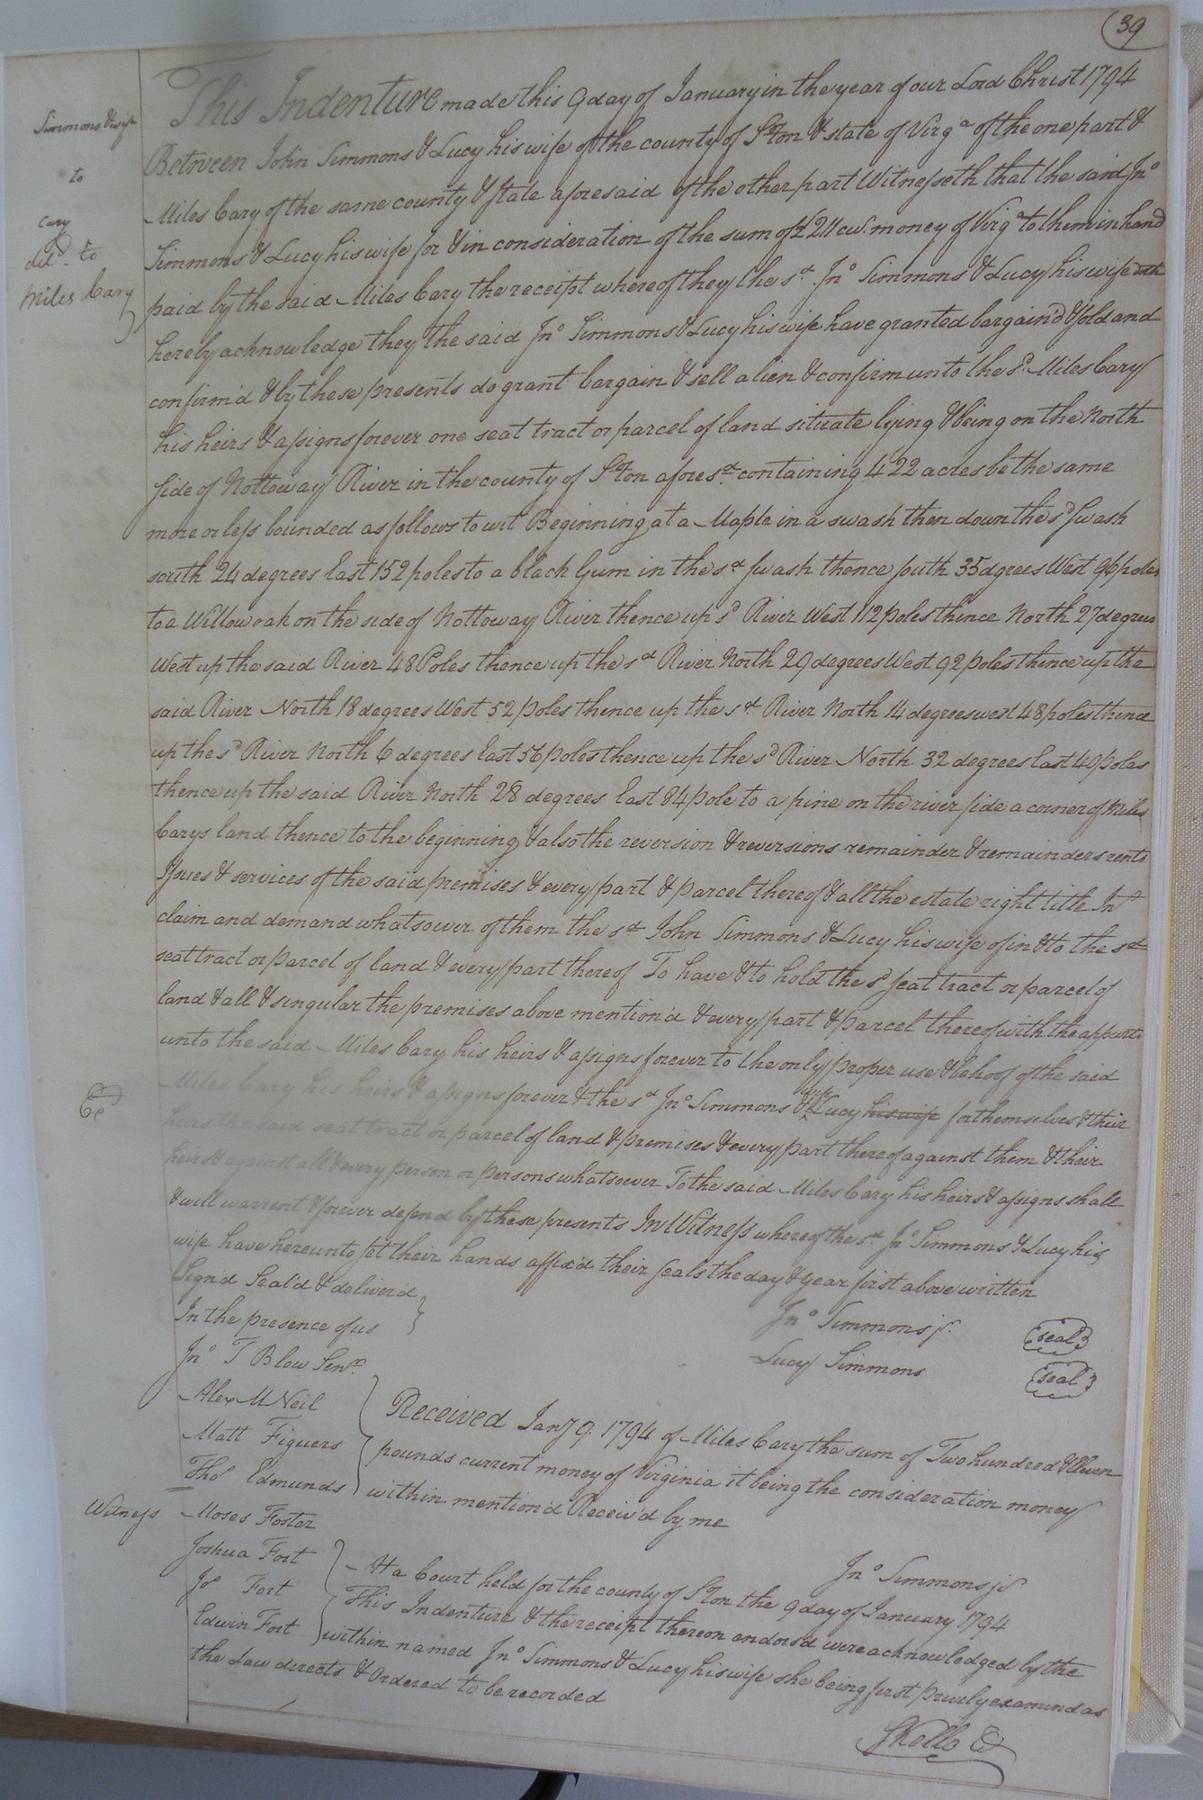 39
Simmons & wife
to
Cary
deld. to
Miles Cary
This Indenture made this 9 day of January in the year of our Lord Christ 1794
Between John Simmons & Lucy his wife of the county of S°ton & state of Virga of the one part &
Miles Cary of the same county & state aforesaid of the other part Witnesseth that the said Jno
Simmons & Lucy his wife for & in consideration of the sum of £ 211 cu. money of Virga to them in hand
paid by the said Miles Cary the receipt whereof they the sd Jno Simmons & Lucy his wife doth
hereby acknowledge they the said Jno Simmons & Lucy his wife have granted bargain'd & sold and
confirm'd & by these presents do grant bargain & sell alien & confirm unto the sd. Miles Cary
his heirs & assigns forever one seat tract or parcel of land situate lying & being on the North
side of Nottoway River in the county of S°ton aforesd. containing 422 acres be the same
more or less bounded as follows to wit Beginning at a Maple in a swash then down the sd swash
south 24 degrees East 152 poles to a black Gum in the sd swash thence south 35 dgrees West 96 poles
to a Willow oak on the side of Nottoway River thence up sd River West 112 poles thence North 27 degrees
West up the said River 48 Poles thence up the sd River North 29 degrees West 92 poles thence up the
said River North 18 degrees West 52 poles thence up the sd River North 14 degrees west 48 poles thence
up the sd River North 6 degrees East 56 poles thence up the sd River North 32 degrees East 40 poles
thence up the said River North 28 degrees East 84 pole to a pine on the river side a corner of Miles
Carys land thence to the beginning & also the reversion & reversions remainder & remainders rents
Issues & services of the said premises & every part & parcel thereof & all the estate right title Int
claim and demand whatsoever of them the sd John Simmons & Lucy his wife of in & to the sd
seat tract or parcel of land & every part thereof To have & to hold the sd seat tract or parcel of
land & all & singular the premises above mention'd & every part & parcel thereof with the appurts
unto the said Miles Cary his heirs & assigns forever to the only proper use & behoof of the said
Miles Cary his heirs & assigns forever & the sd Jno Simmons & Lucy his wife for themselves & their
heirs the said seat tract or parcel of land & premises & every part thereof against them & their
heirs & against all & every person or persons whatsoever To the said Miles Cary his heirs & assigns shall
& will warrent & forever defend by these presents In Witness whereof the sd. Jno Simmons & Lucy his
wife have hereunto set their hands affix'd their seals the day & year first above written
Sign'd Seal'd & deliver'd
In the presence of us
Jno Simmons jr. seal
Jno T Blow Senr.
Lucy Simmons seal
Alex McNeil
Matt Figuers
Thos Edmunds
Received Jany 9. 1794 of Miles Cary the sum of Two hundred & Eleven
pounds current money of Virginia it being the consideration money
within mention'd Receiv'd by me
Witness
Moses Foster
Joshua Fort
Jo Fort
Edwin Fort
Jno Simmons jr
At a Court held for the county of S°ton the 9 day of January 1794
This Indenture & the receipt thereon endors'd were acknowledged by the
within named Jno Simmons & Lucy his wife she being first privily examined as
the Law directs & Ordered to be recorded